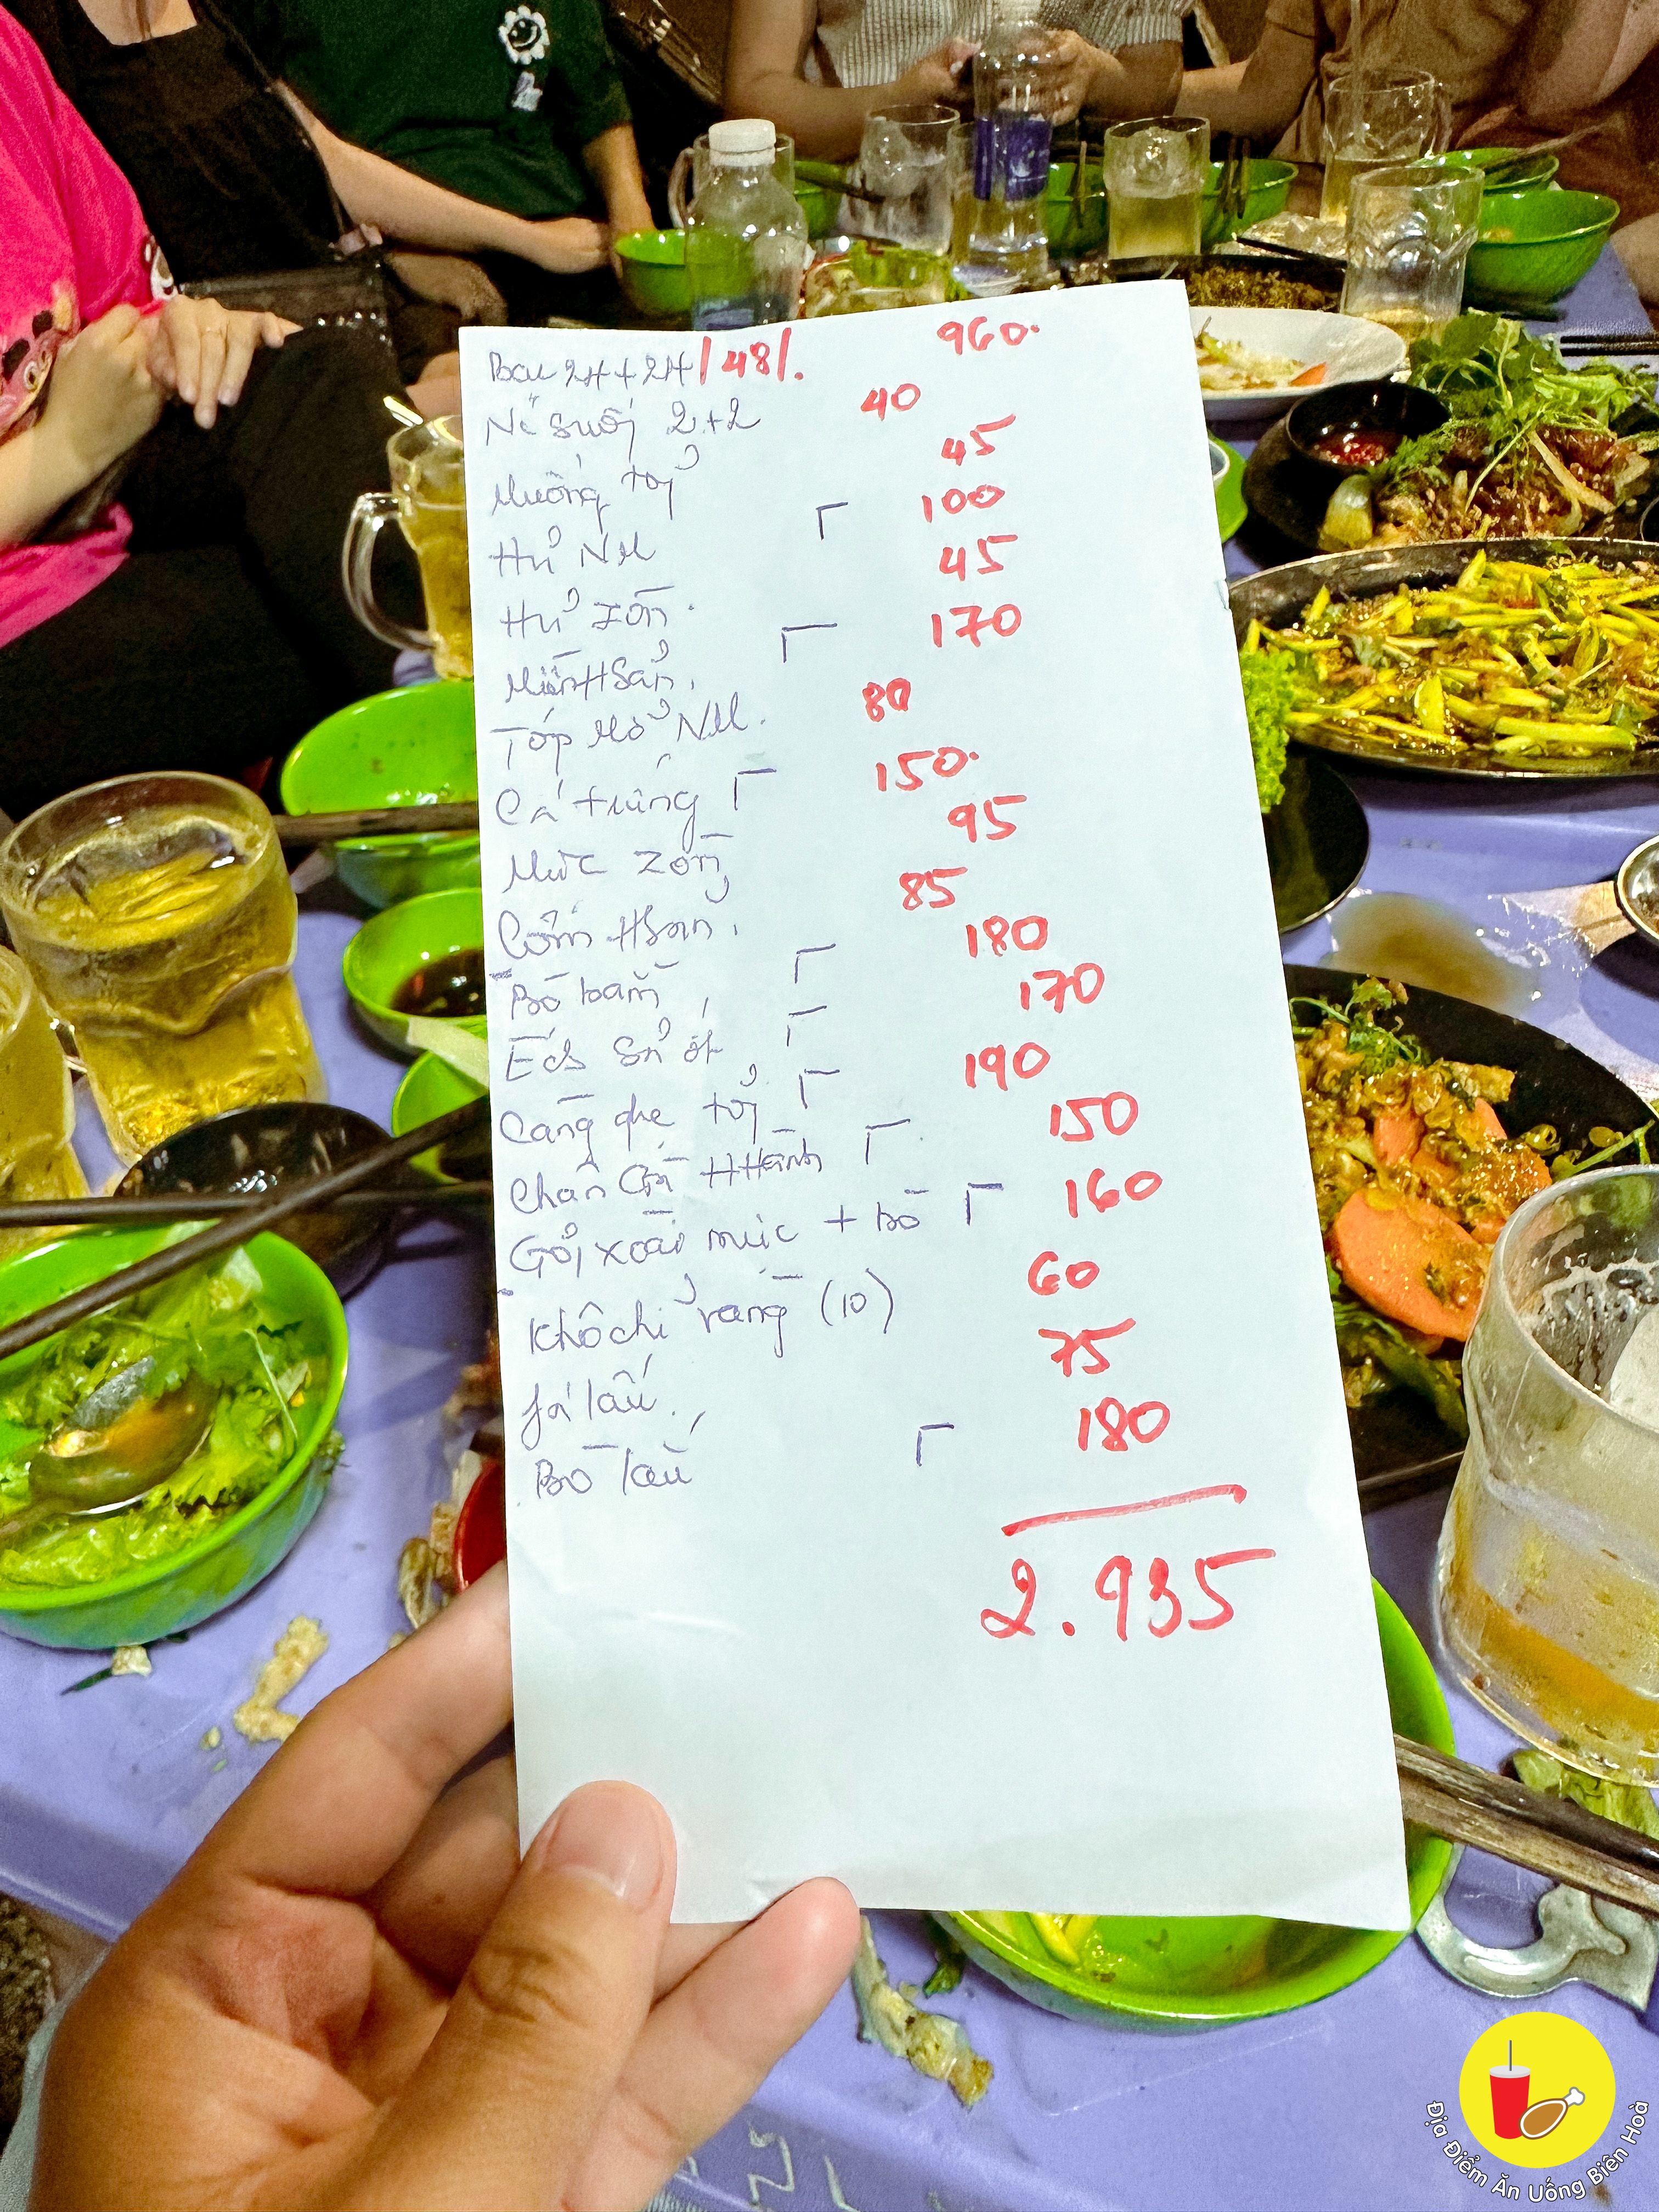 2H+2H |48|. 960.
Nc suối 2+2 40
Muống tỏi 45
Hủ NM 100
Hủ zòn. 45
Miến Hsản. 170
Tóp Mỡ NM. 80
Cá trứng 150.
Mực zòn 95
Cơm Hsản. 85
Bò bằm 180
Ếch sả ớt 170
Càng ghe tỏi 190
Chân Gà HHành 150
Gỏi xoài mực + bò 160
Khô chỉ vàng (10) 60
Gà lẩu. 75
Bò lẩu 180
2.935
Địa Điểm Ăn Uống Biên Hoà